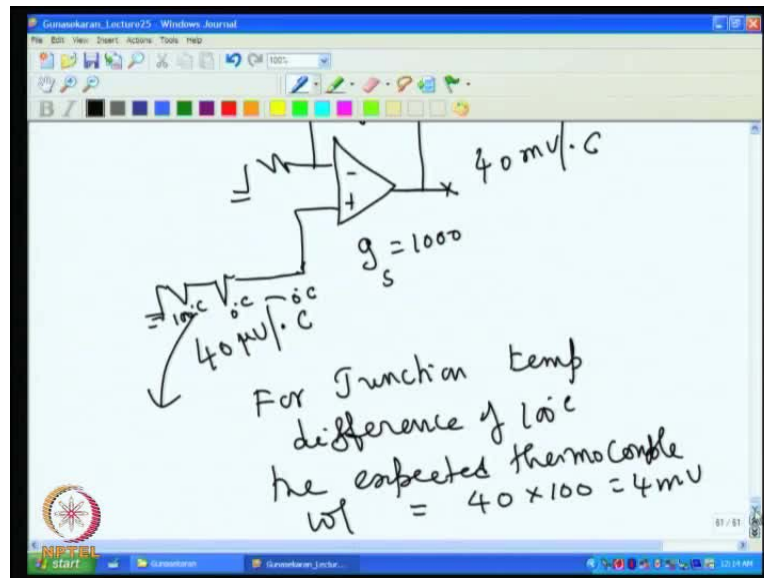 Gunasekaran_Lecture25 - Windows Journal
File Edit View Insert Actions Tools Help
100%
B I
-
+
40 mV/°C
g_s = 1000
100°C 0°C — 0°C
40 μV/°C
For Junction temp
difference of 100°C
the expected thermocouple
= 40 × 100 = 4mV
61 / 61
NPTEL
start Gunasekaran Gunasekaran_Lectur... 12:14 AM